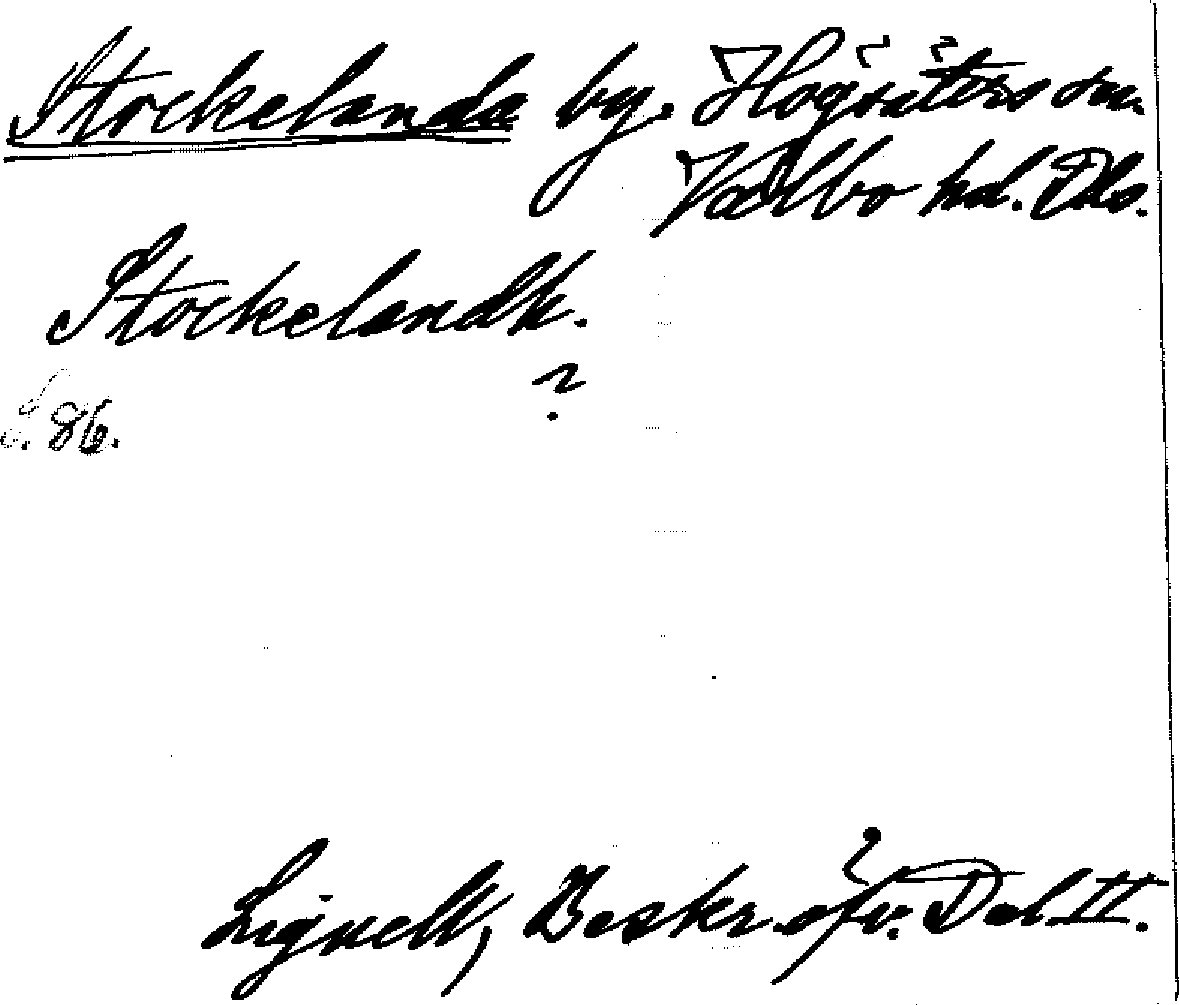 Stockelanda by. Högsäters sn.
Valbo hd. Dls.
Stockelandh.
?
S. 86.
Lignell, Beskr. öfv. Dal II.